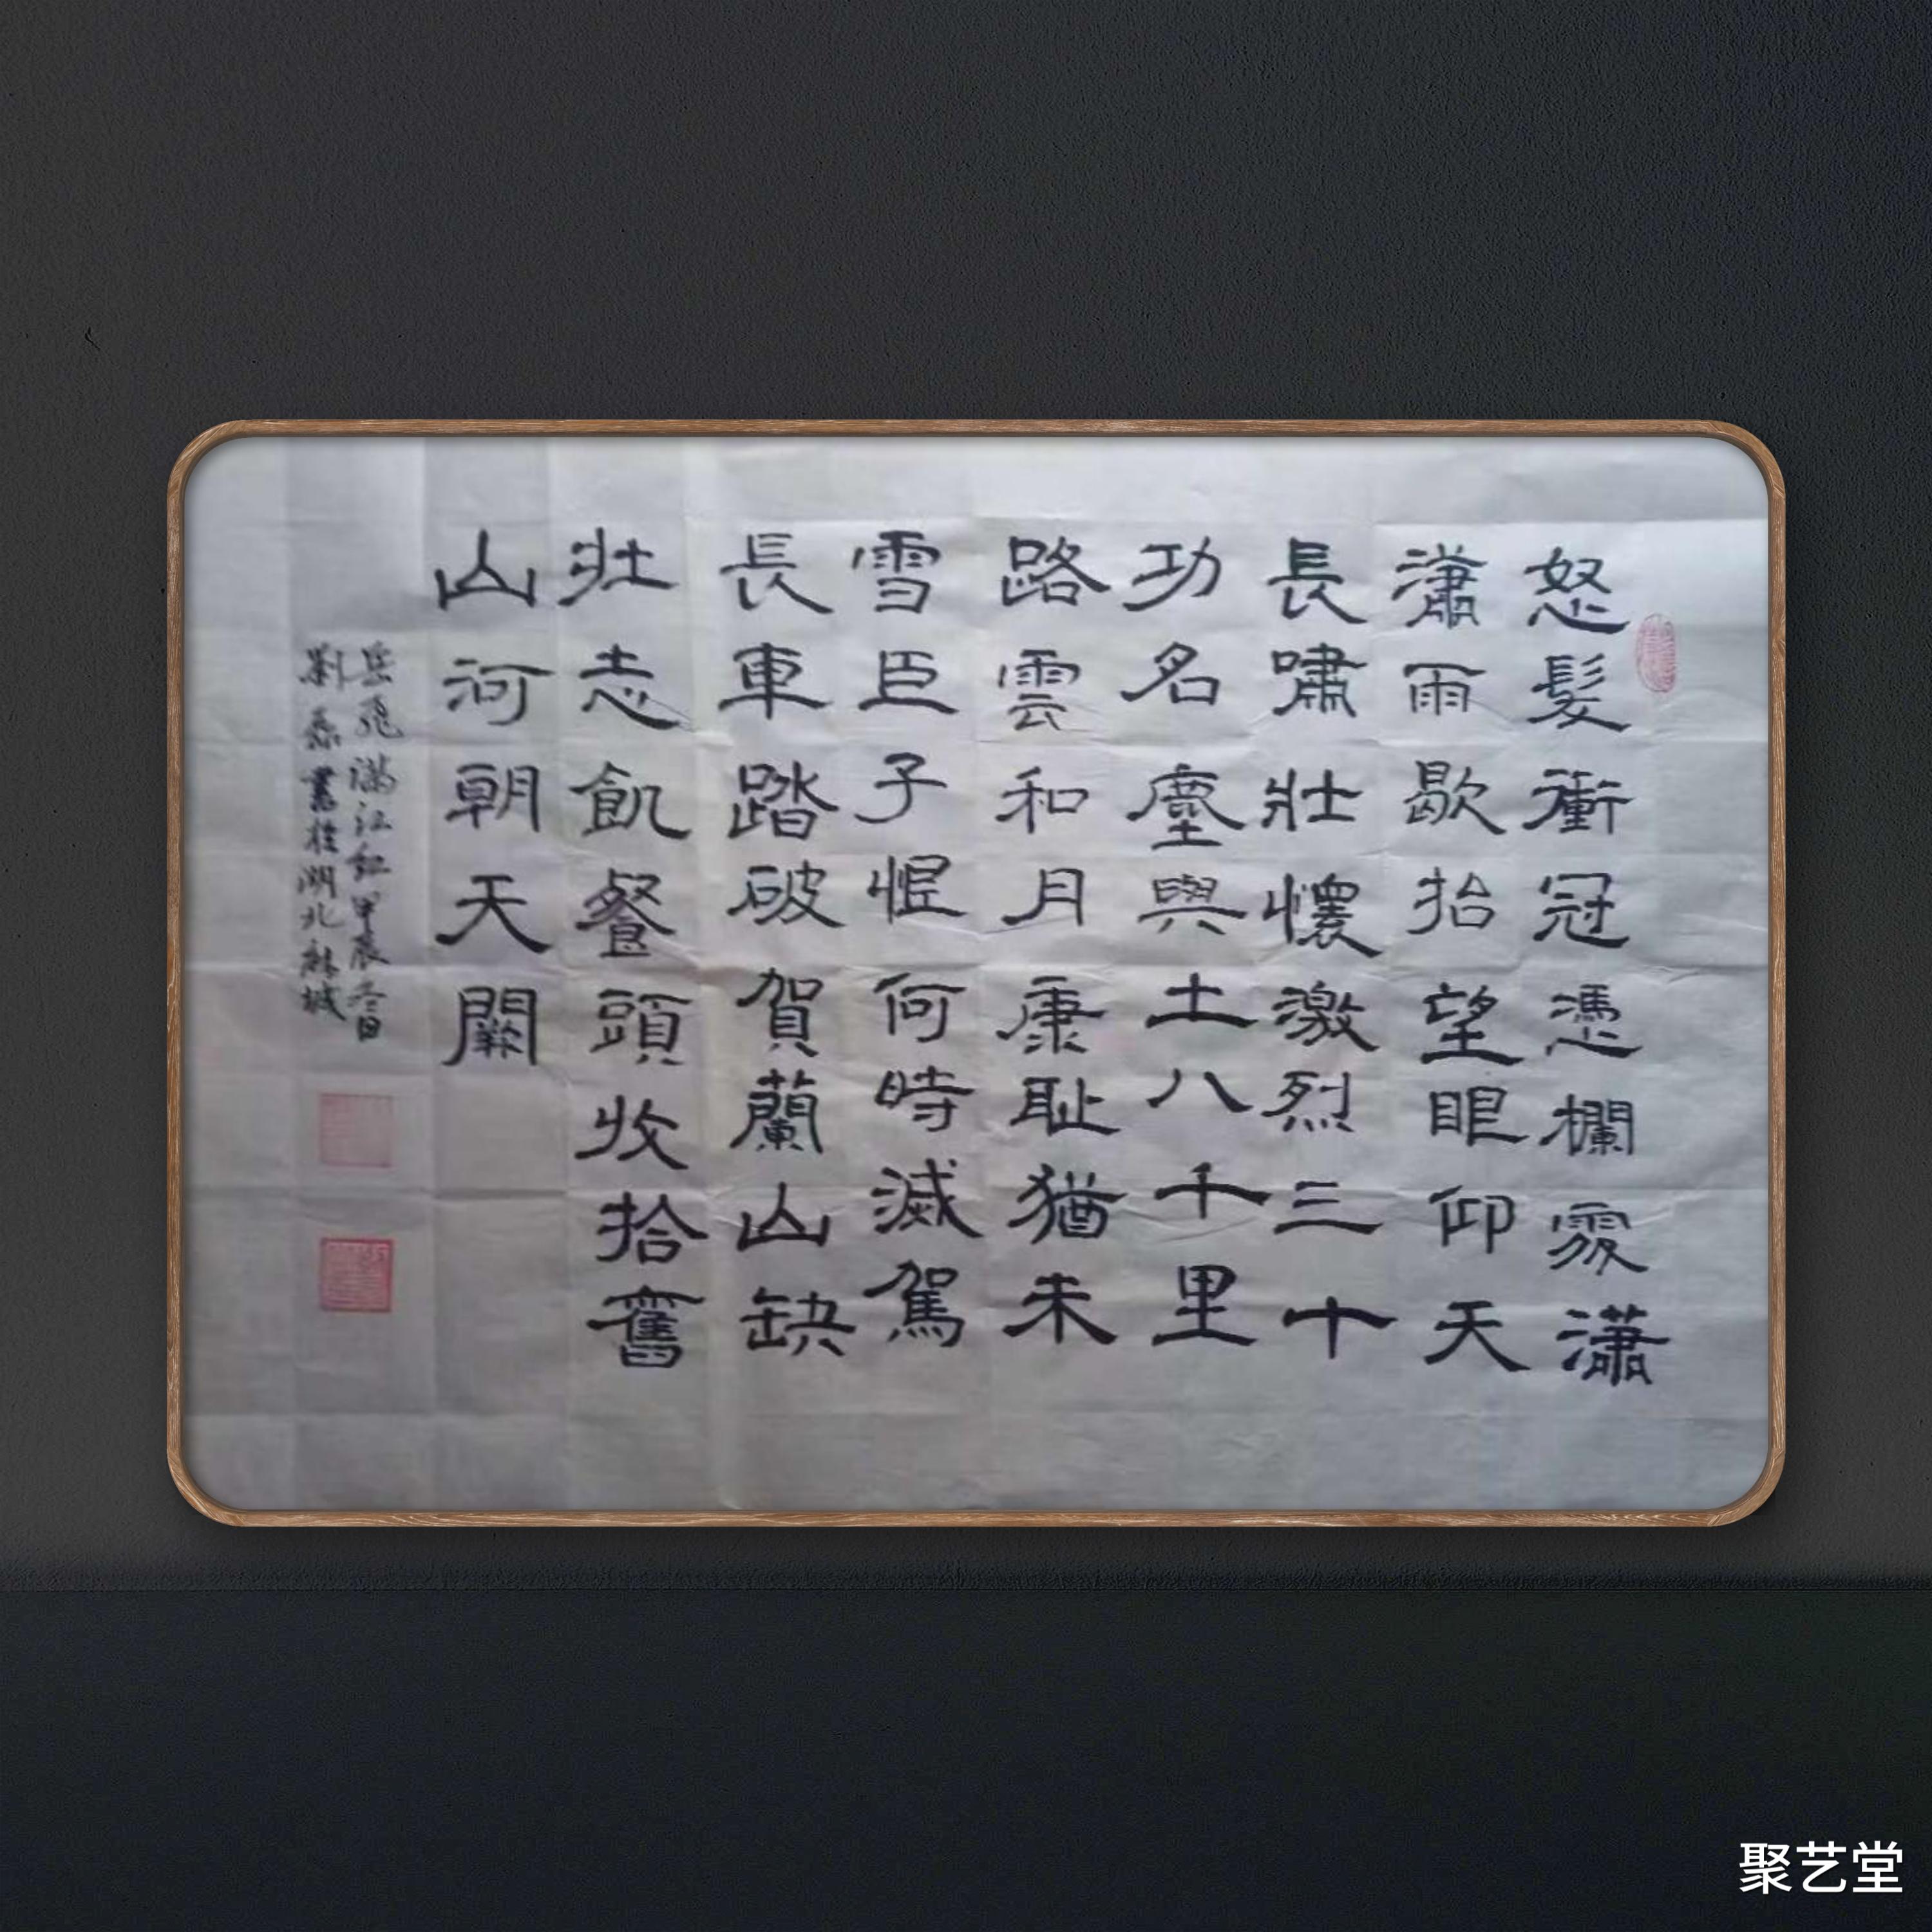 怒髮衝冠憑欄處瀟
瀟雨歇抬望眼仰天
長嘯壯懷激烈三十
功名塵與土八千里
路雲和月康耻猶未
雪臣子恨何時滅駕
長車踏破賀蘭山缺
壯志飢餐頭收拾舊
山河朝天闕
岳飛滿江紅甲辰冬日
劉磊書於湖北麻城
聚艺堂